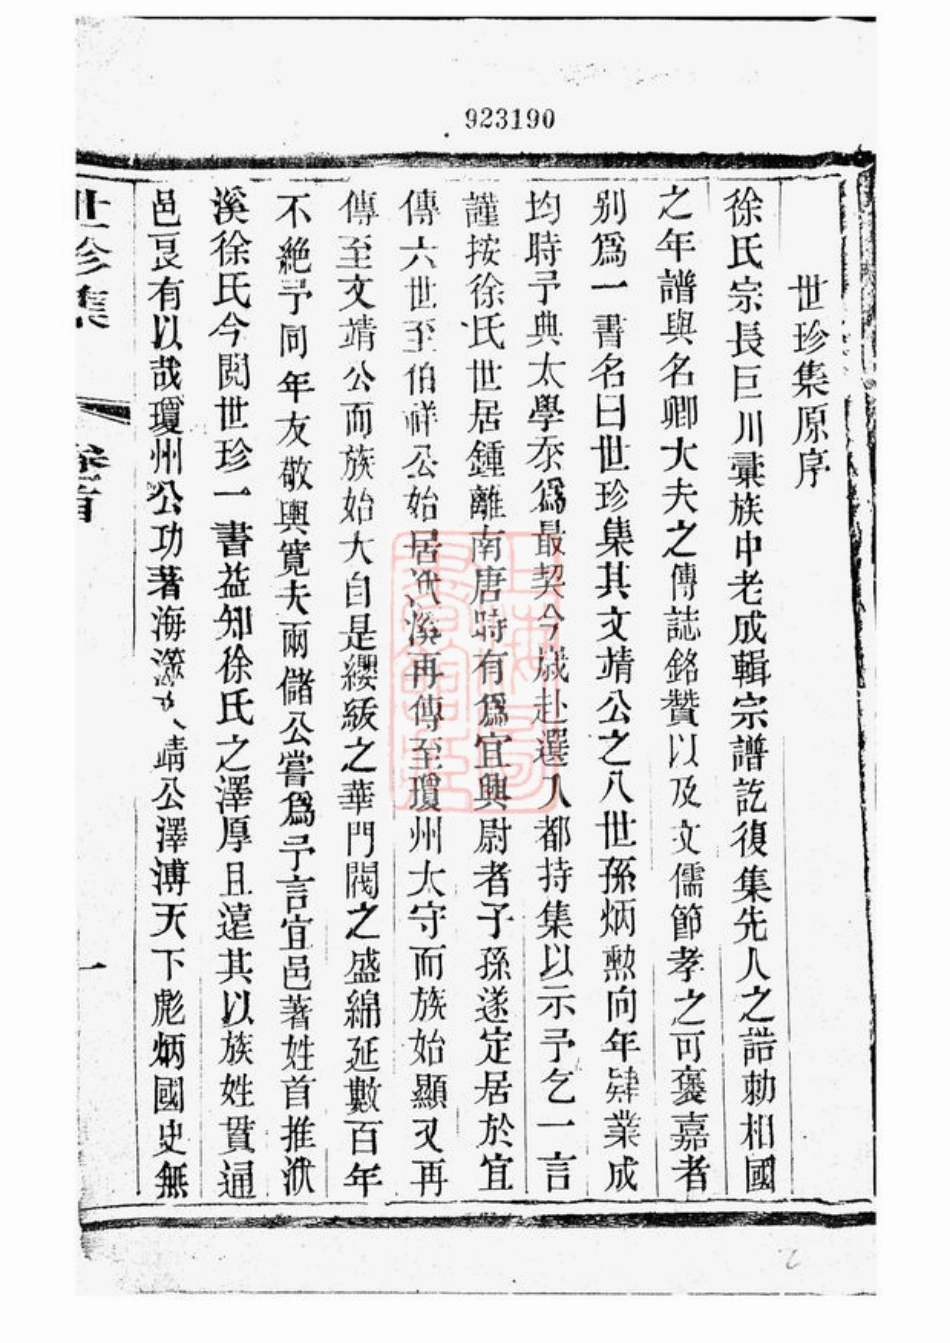 923190
世珍集原序
徐氏宗長巨川彚族中老成輯宗譜訖復集先人之誥勅相國
之年譜與名卿大夫之傳誌銘贊以及文儒節孝之可褒嘉者
别爲一書名曰世珍集其文靖公之八世孫炳勲向年肄業成
均時予典太學泰爲最契今歲赴選入都持集以示予乞一言
謹按徐氏世居鍾離南唐時有爲宜興尉者子孫遂定居於宜
傳六世至伯祥公始居洑溪再傳至瓊州太守而族始顯又再
傳至文靖公而族始大自是纓紱之華門閥之盛綿延數百年
不絶予同年友敬輿寛夫兩儲公嘗爲予言宜邑著姓首推洑
溪徐氏今閲世珍一書益知徐氏之澤厚且遠其以族姓貫通
邑良有以哉瓊州公功著海澨文靖公澤溥天下彪炳國史無
世珍集
卷首
一